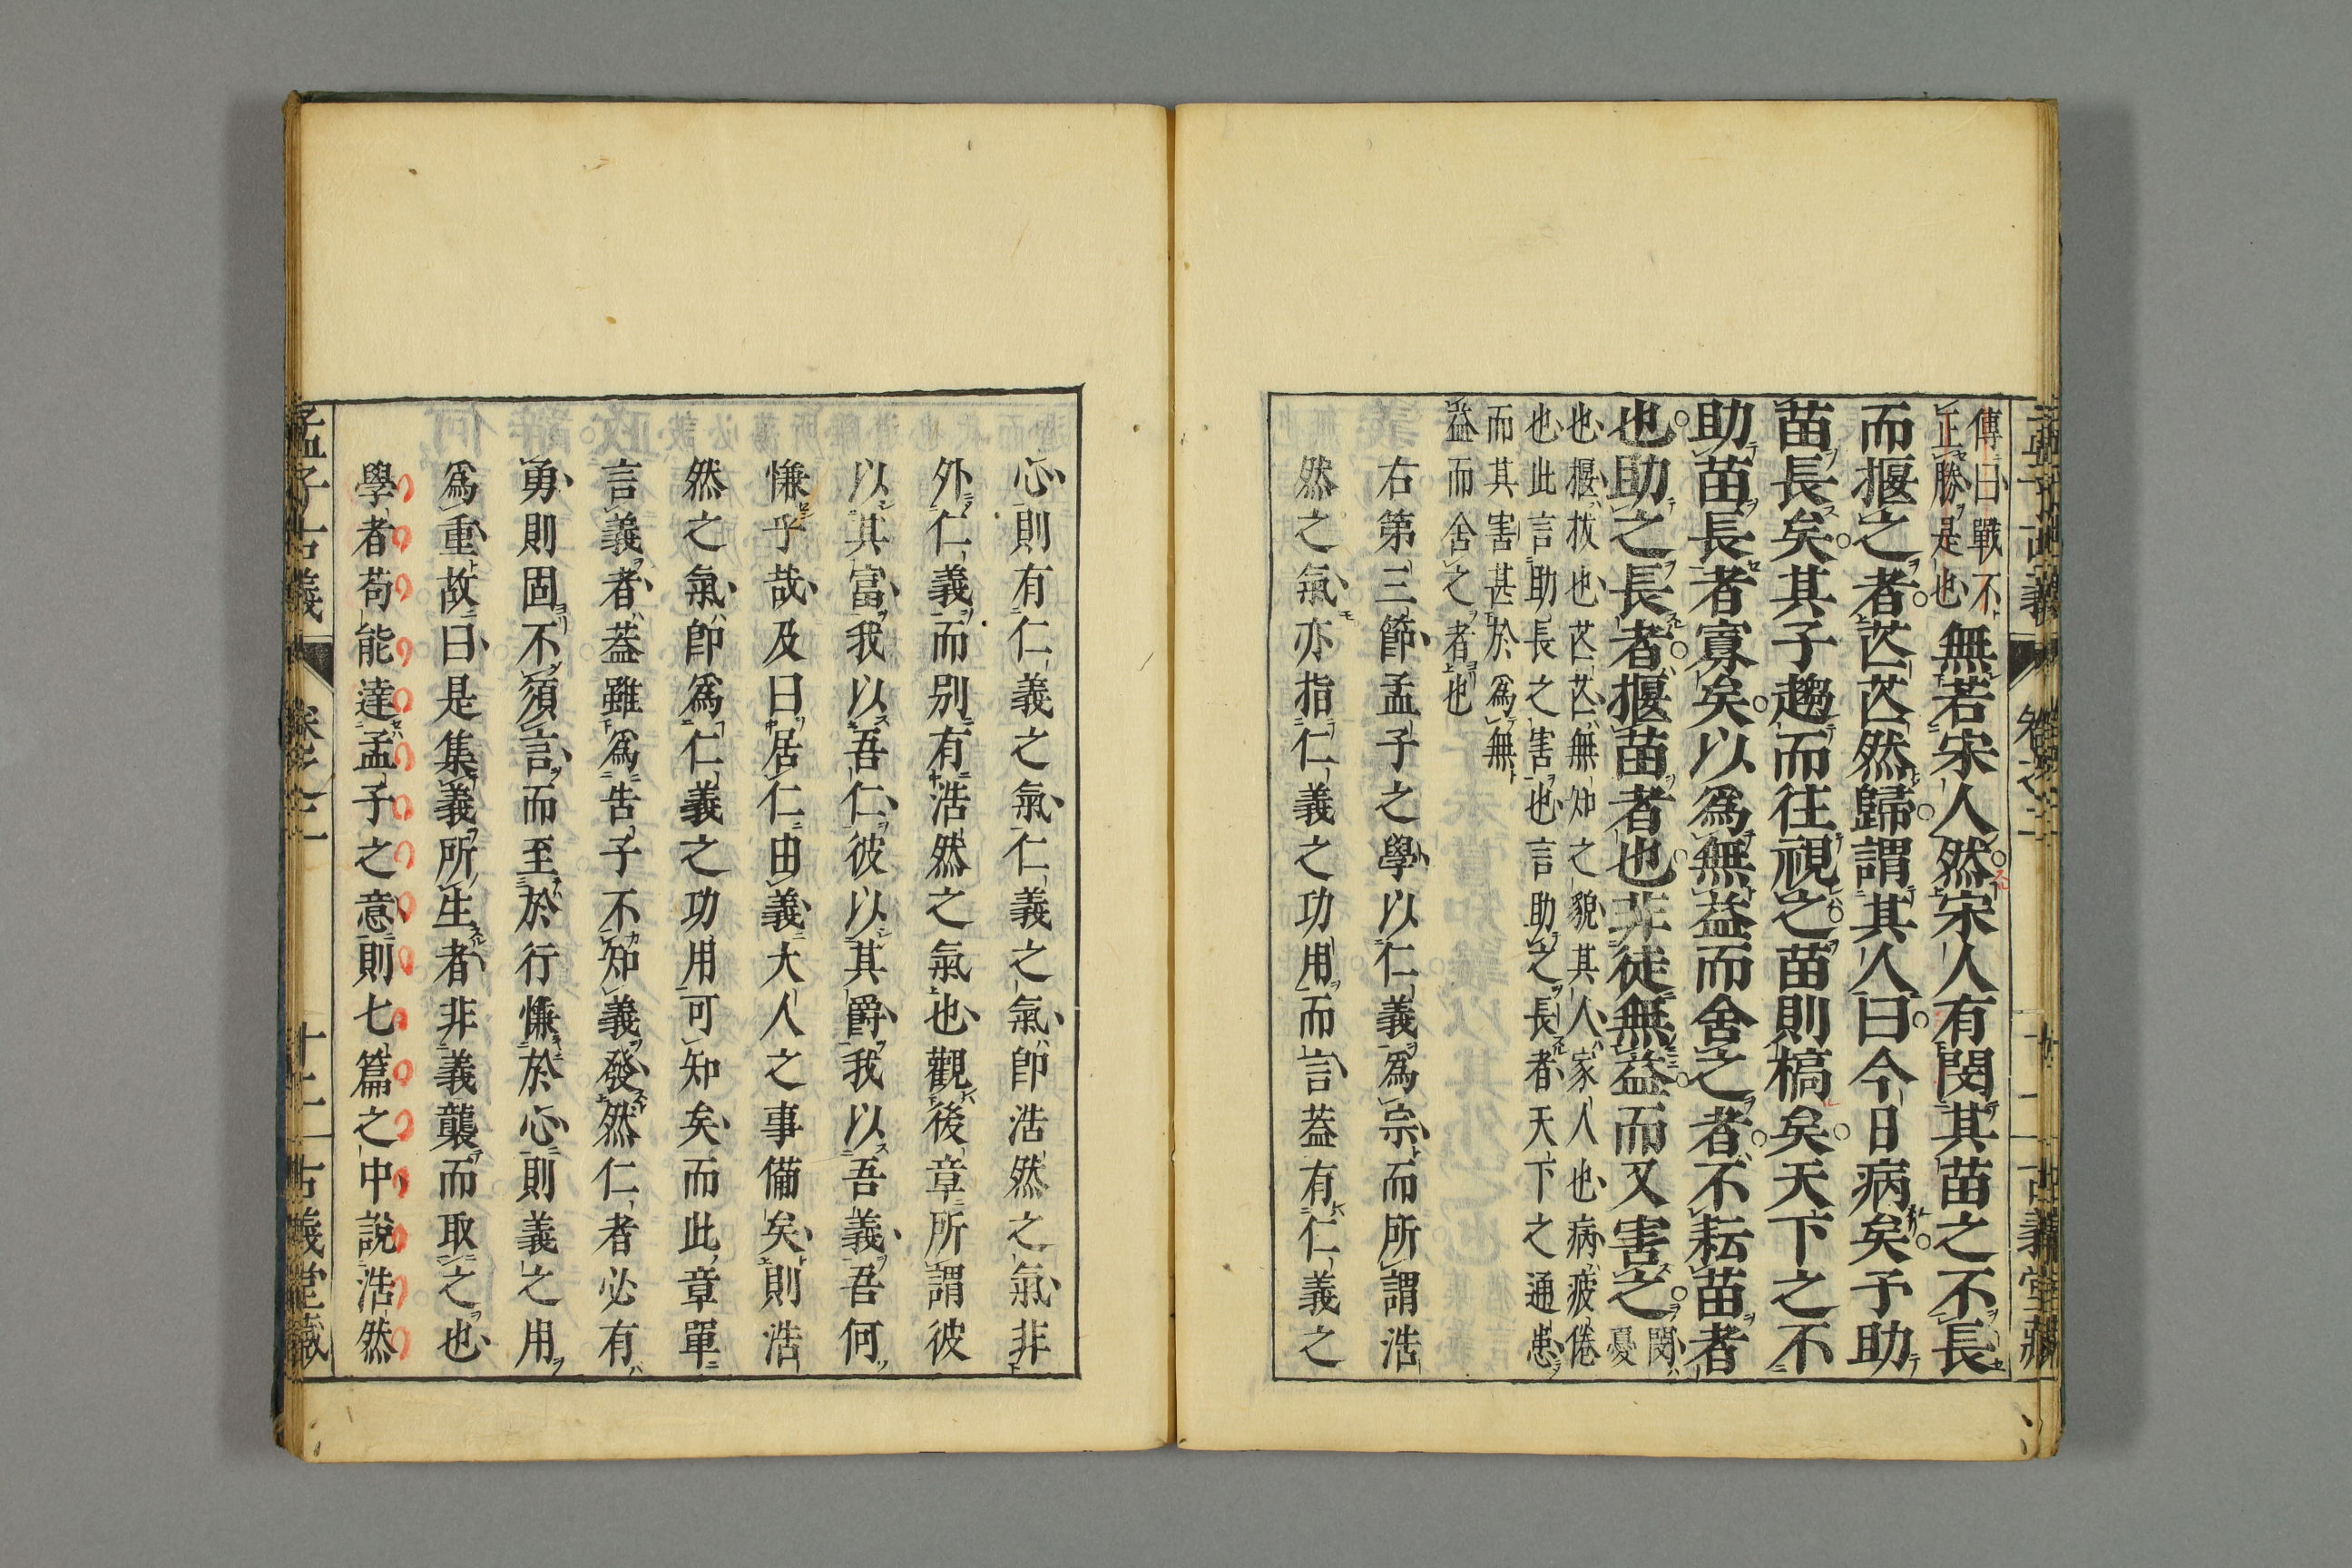 孟子古義 卷之二 十二 古義堂藏
傳曰戰不
正勝是也
無若宋人然宋人有閔其苗之不長
而揠之者芒芒然歸謂其人曰今日病矣予助
苗長矣其子趨而往視之苗則槁矣天下之不
助苗長者寡矣以爲無益而舍之者不耘苗者
也助之長者揠苗者也非徒無益而又害之
閔憂
也揠拔也芒芒無知之貌其人家人也病疲倦
也此言助長之害也言助之長者天下之通患
而其害甚於爲無
益而舍之者也
右第三節孟子之學以仁義爲宗而所謂浩
然之氣亦指仁義之功用而言葢有仁義之
心則有仁義之氣仁義之氣卽浩然之氣非
外仁義而別有浩然之氣也觀後章所謂彼
以其富我以吾仁彼以其爵我以吾義吾何
慊乎哉及曰居仁由義大人之事備矣則浩
然之氣卽爲仁義之功用可知矣而此章單
言義者葢雖爲告子不知義發然仁者必有
勇則固不須言而至於行慊於心則義之用
爲重故曰是集義所生者非義襲而取之也
學者苟能達孟子之意則七篇之中說浩然
孟子古義 卷之二 十二 古義堂藏